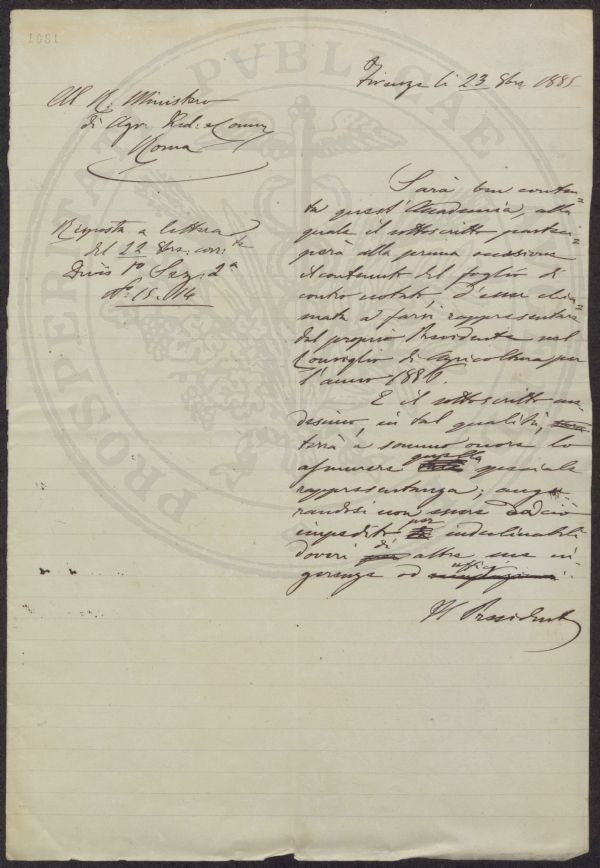 1801
PROSPERITATI PVBLICAE
Firenze li 23 Xbre 1885
Al R. Ministero
di Agr. Ind. e Comm.
Roma
Risposta a lettera
del 22 Xbre corr.te
Divis 1a Sez. 2a
No. 15.014
Sarà ben conten=
ta quest'Accademia, alla
quale il sottoscritto parteci=
perà alla prima occasione
il contenuto del foglio di
contro notato, d'esser chia=
mata a farsi rappresentare
dal proprio Presidente nel
Consiglio di Agricoltura per
l'anno 1886.
E il sottoscritto me=
desimo, in tal qualità,
terrà a sommo onore lo
assumere quella speciale
rappresentanza, augu=
randosi non essere da ciò
impedito per indeclinabili
doveri di altre sue in=
gerenze od uffici.
Il Presidente